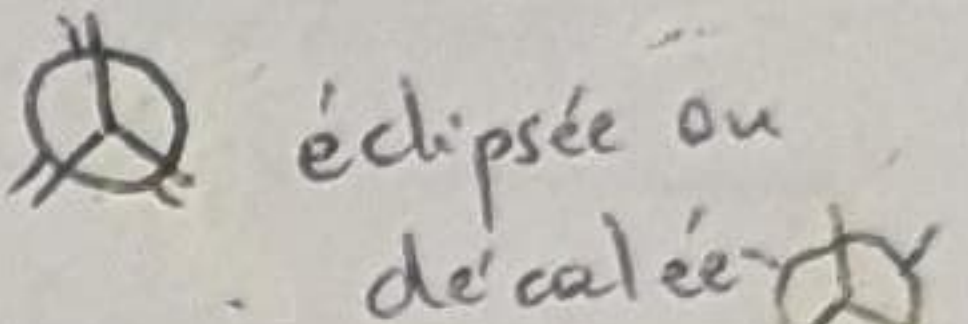 éclipsée ou
décalée